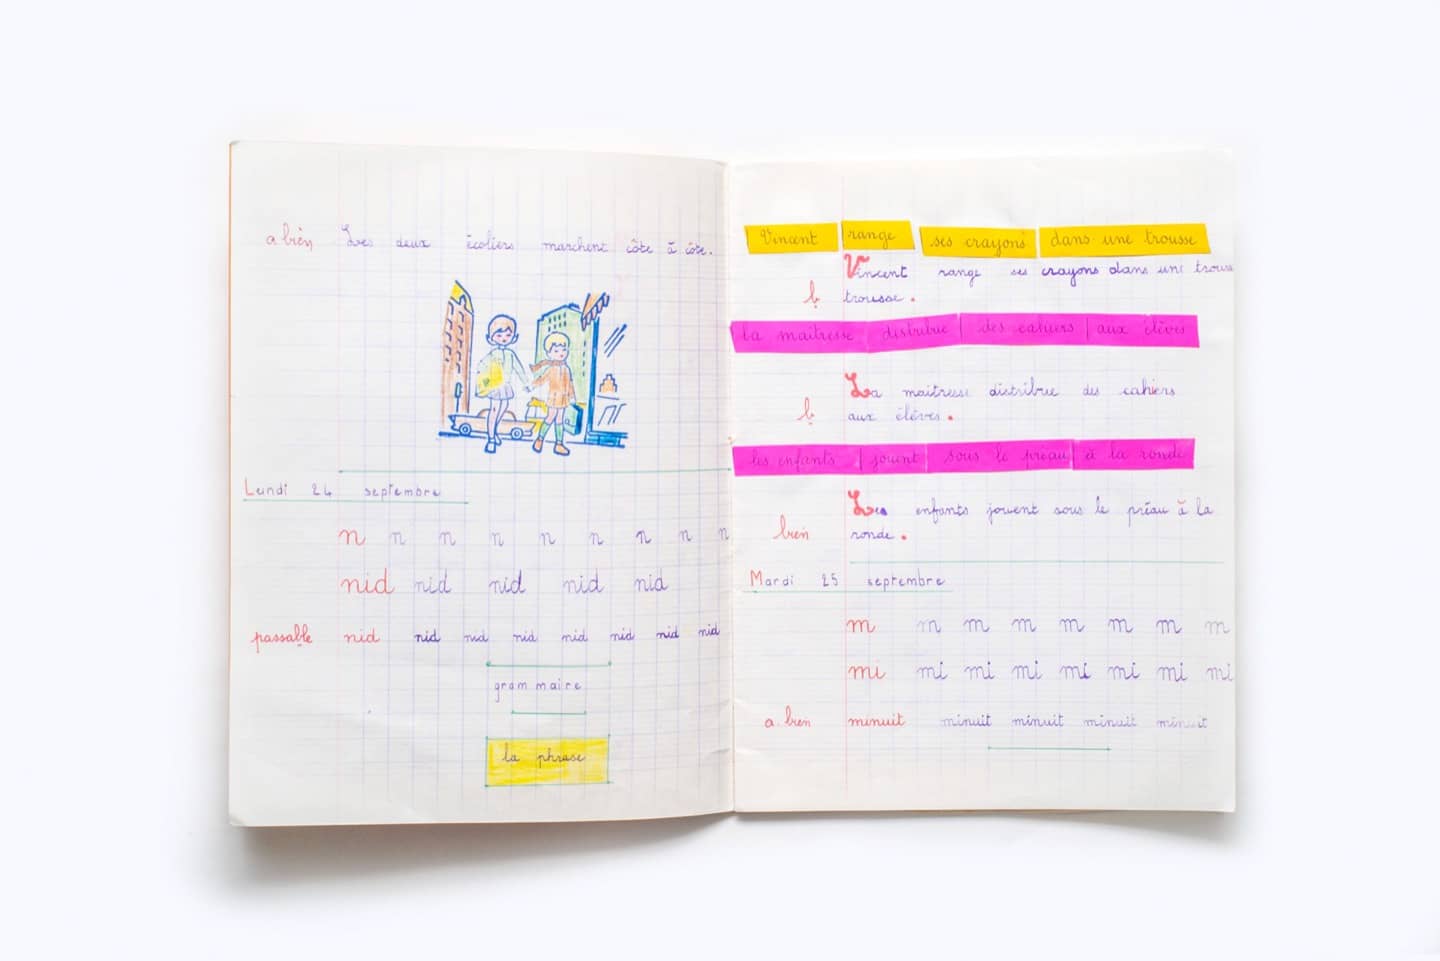 a bien Les deux écoliers marchent côte à côte.
Lundi 24 septembre
n n n n n n n n n
nid nid nid nid nid
passable nid nid nid nid nid nid nid nid
grammaire
la phrase
Vincent range ses crayons dans une trousse
Vincent range ses crayons dans une trousse
b trousse.
la maitresse distribue des cahiers aux élèves
La maitresse distribue des cahiers
b aux élèves.
les enfants jouent sous le préau à la ronde
Les enfants jouent sous le préau à la
bien ronde.
Mardi 25 septembre
m m m m m m m m
mi mi mi mi mi mi mi mi
a. bien minuit minuit minuit minuit minuit